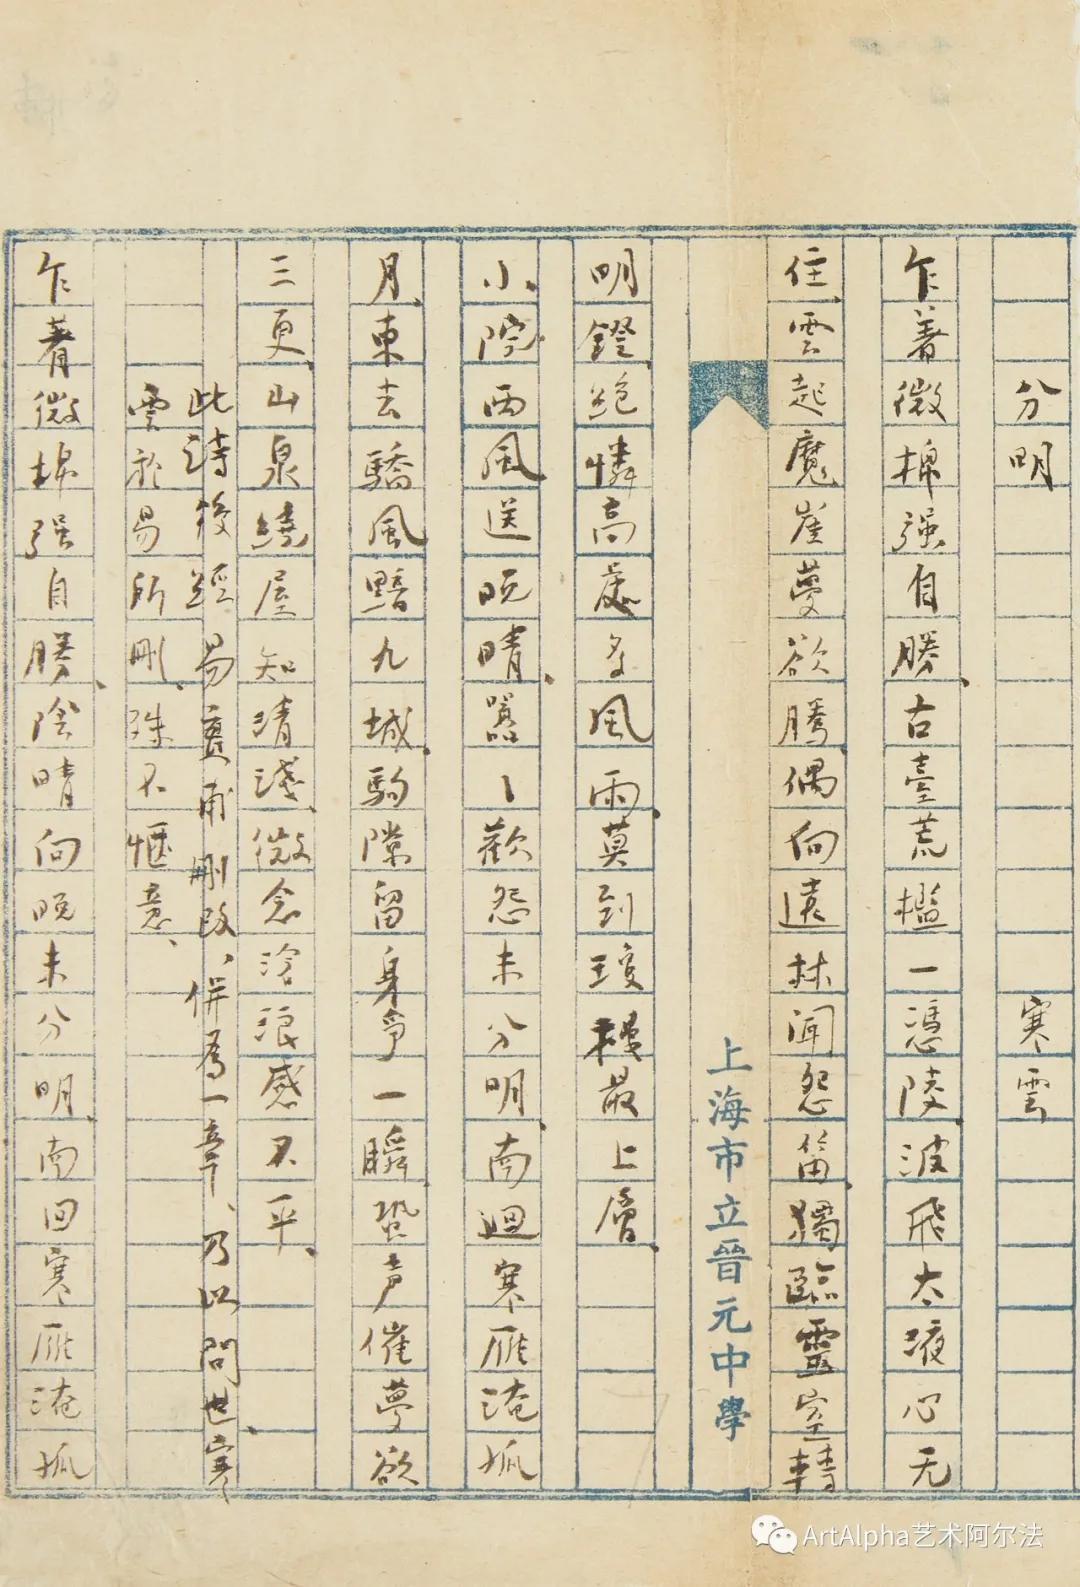 分明 寒雲
乍着微棉强自勝、古臺荒檻一憑陵波飛太液心无
住、雲起魔崖夢欲腾、偶向遠林闻怨笛、獨臨靈室轉
上海市立晉元中學
明鐙絶憐高處多風雨、莫到瓊樓最上層、
小院西風送晚晴、嚣〻歡怨未分明、南迴寒雁淹孤
月、東去驕風黯九城、駒隙留身爭一瞬、蛩声催夢欲
三更、山泉繞屋知清淺、微念滄浪感不平、
此詩後經易 甫刪改、併為一章、乃以問世、寒
雲於易所刪、殊不惬意、
乍著微棉强自勝、陰晴向晚未分明、南回寒雁淹孤
ArtAlpha艺术阿尔法